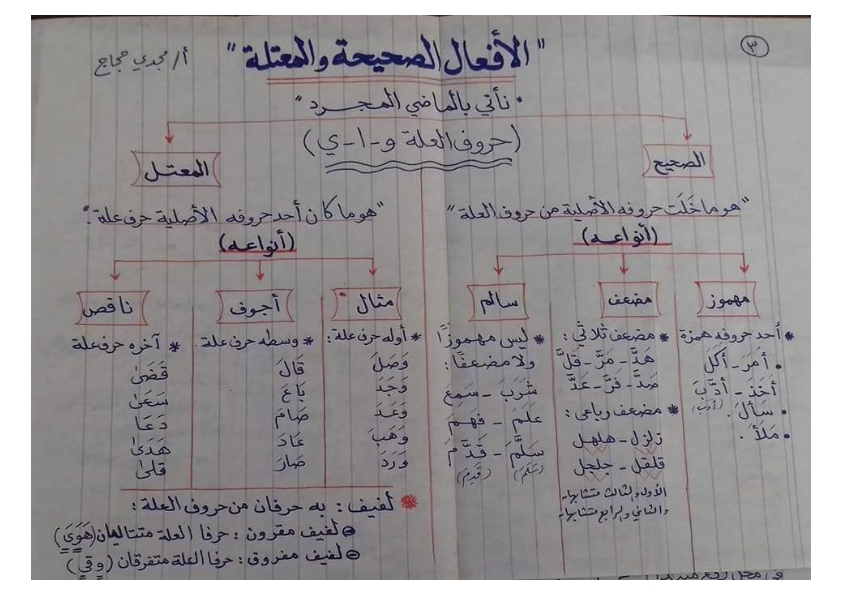 ٣
"الأفعال الصحيحة والمعتلة"
أ/ مجدي حجاج
• نأتي بالماضي المجرد "
(حروف العلة و-ا-ي)
الصحيح
"هو ما خَلَت حروفه الأصلية من حروف العلة"
(أنواعه)
مهموز
* أحد حروفه همزة
• أمَرَ - أَكَلَ
أخَذَ - أدَّبَ
(أدب)
• سَألَ
• مَلَأَ .
مضعف
* مضعف ثلاثي :
هَدَّ - مَرَّ - قَلَّ
صَدَّ - فَرَّ - عَدَّ
* مضعف رباعى :
زلزل - هلهل
قلقل - جلجل
الأول والثالث متشابهان
والثاني والرابع متشابهان
سالم
* ليس مهموزًا
ولا مضعفًا :
شَرَبَ - سَمِعَ
علمَ - فَهِمَ
سَلَّمَ - قَدَّمَ
(سَلِمَ) (قَدِمَ)
المعتل
"هو ما كان أحد حروفه الأصلية حرف علة".
(أنواعه)
مثال
* أوله حرف علة :
وَصَلَ
وَجَدَ
وَعَدَ
وَهَبَ
وَرَدَ
أجوف
* وسطه حرف علة .
قَالَ
بَاعَ
صَامَ
عَادَ
صَارَ
ناقص
* آخره حرف علة
قَضَى
سَعَى
دَعَا
هَدَى
قلى
* لفيف : به حرفان من حروف العلة :
لفيف مقرون : حرفا العلة متتاليان (هَوَيَ)
لفيف مفروق : حرفا العلة متفرقان (وقي)